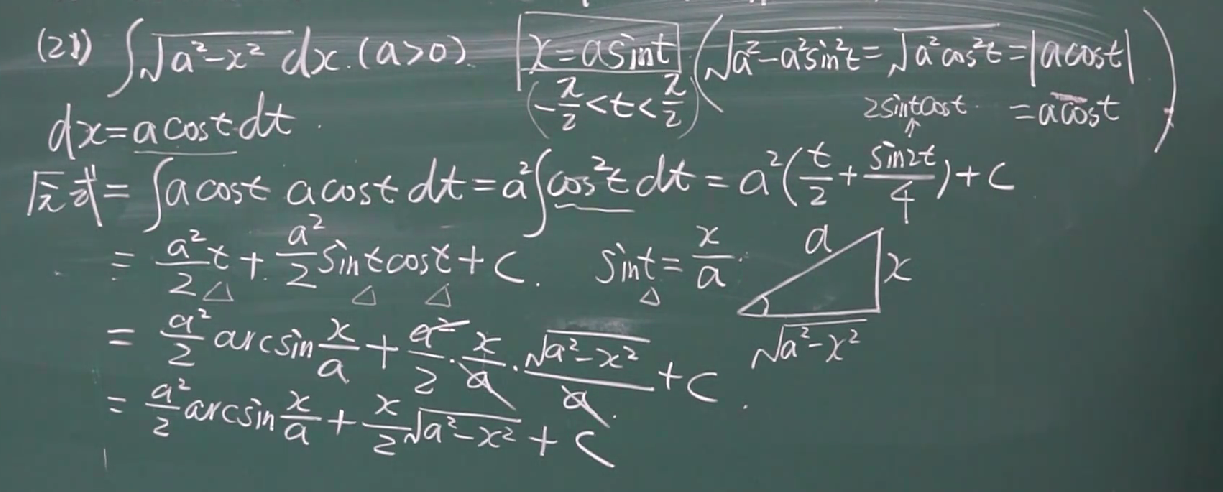 (21) ∫√(a²-x²) dx. (a>0). x=asint (√(a²-a²sin²t)=√(a²cos²t)=|acost|
dx=acost dt. (-π/2<t<π/2) 2sintcost =acost)
原式=∫acost acost dt=a²∫cos²t dt=a²(t/2+sin2t/4)+C
=a²/2 t+a²/2 sintcost+C. sint=x/a. a x
=a²/2 arcsin x/a+a²/2·x/a·√(a²-x²)/a+C. √(a²-x²)
=a²/2 arcsin x/a+x/2√(a²-x²)+C